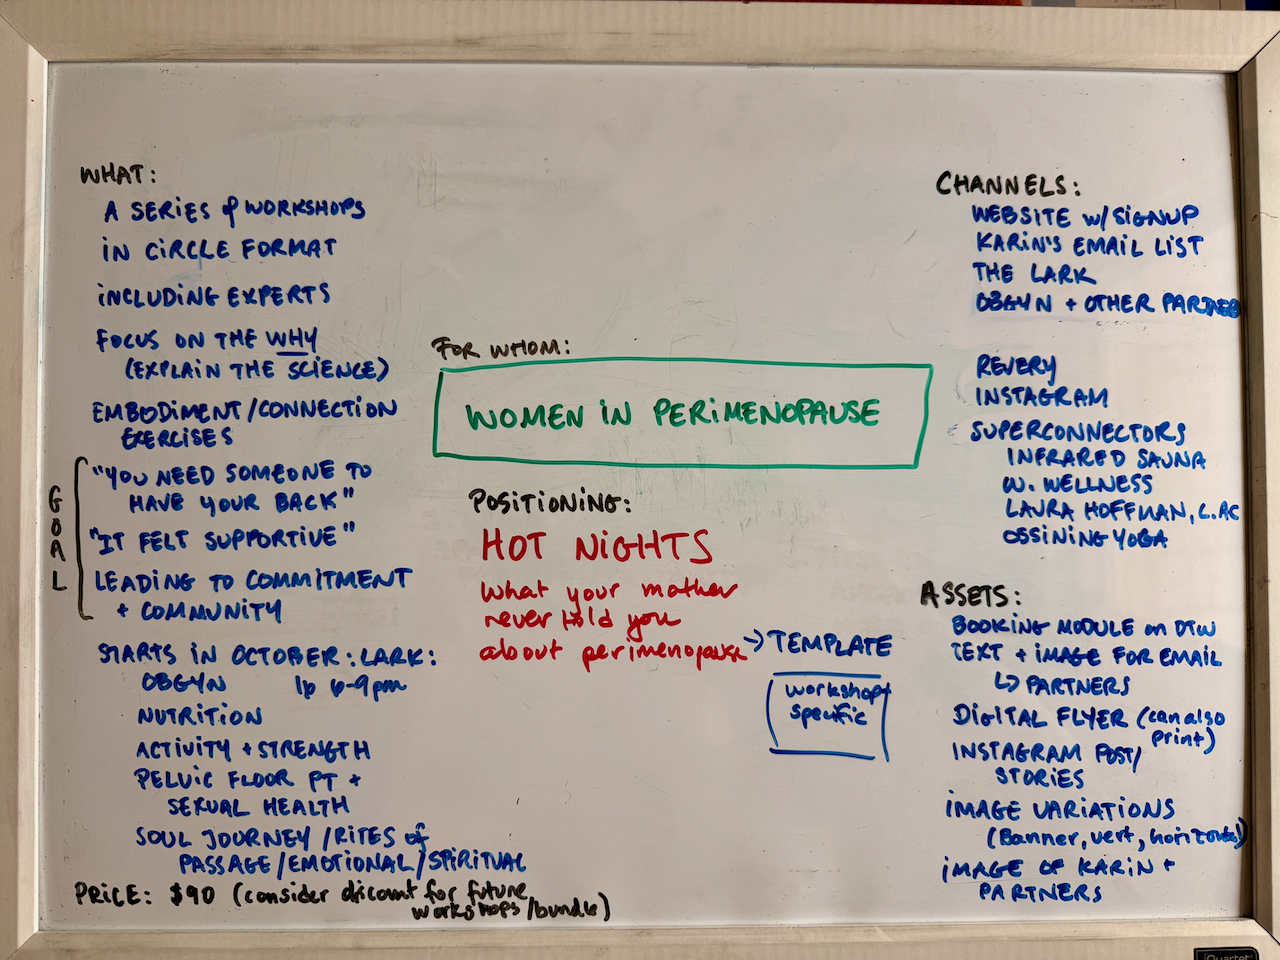 WHAT:
A SERIES of WORKSHOPS
IN CIRCLE FORMAT
INCLUDING EXPERTS
FOCUS ON THE WHY
(EXPLAIN THE SCIENCE)
EMBODIMENT/CONNECTION
EXERCISES
GOAL
"YOU NEED SOMEONE TO
HAVE YOUR BACK"
"IT FELT SUPPORTIVE"
LEADING TO COMMITMENT
+ COMMUNITY
STARTS IN OCTOBER: LARK:
OBGYN 6-9pm
NUTRITION
ACTIVITY + STRENGTH
PELVIC FLOOR PT +
SEXUAL HEALTH
SOUL JOURNEY/RITES of
PASSAGE/EMOTIONAL/SPIRITUAL
PRICE: $90 (consider discount for future
workshops/bundle)
FOR WHOM:
WOMEN IN PERIMENOPAUSE
POSITIONING:
HOT NIGHTS
What your mother
never told you
about perimenopause
→ TEMPLATE
workshop
specific
CHANNELS:
WEBSITE W/ SIGNUP
KARIN'S EMAIL LIST
THE LARK
OBGYN + OTHER PARTNERS
REVERY
INSTAGRAM
SUPERCONNECTORS
INFRARED SAUNA
W. WELLNESS
LAURA HOFFMAN, L.AC
OSSINING YOGA
ASSETS:
BOOKING MODULE on DTW
TEXT + IMAGE FOR EMAIL
↳ PARTNERS
DIGITAL FLYER (can also
print)
INSTAGRAM POST/
STORIES
IMAGE VARIATIONS
(Banner, vert, horizontal)
IMAGE OF KARIN +
PARTNERS
Quartet